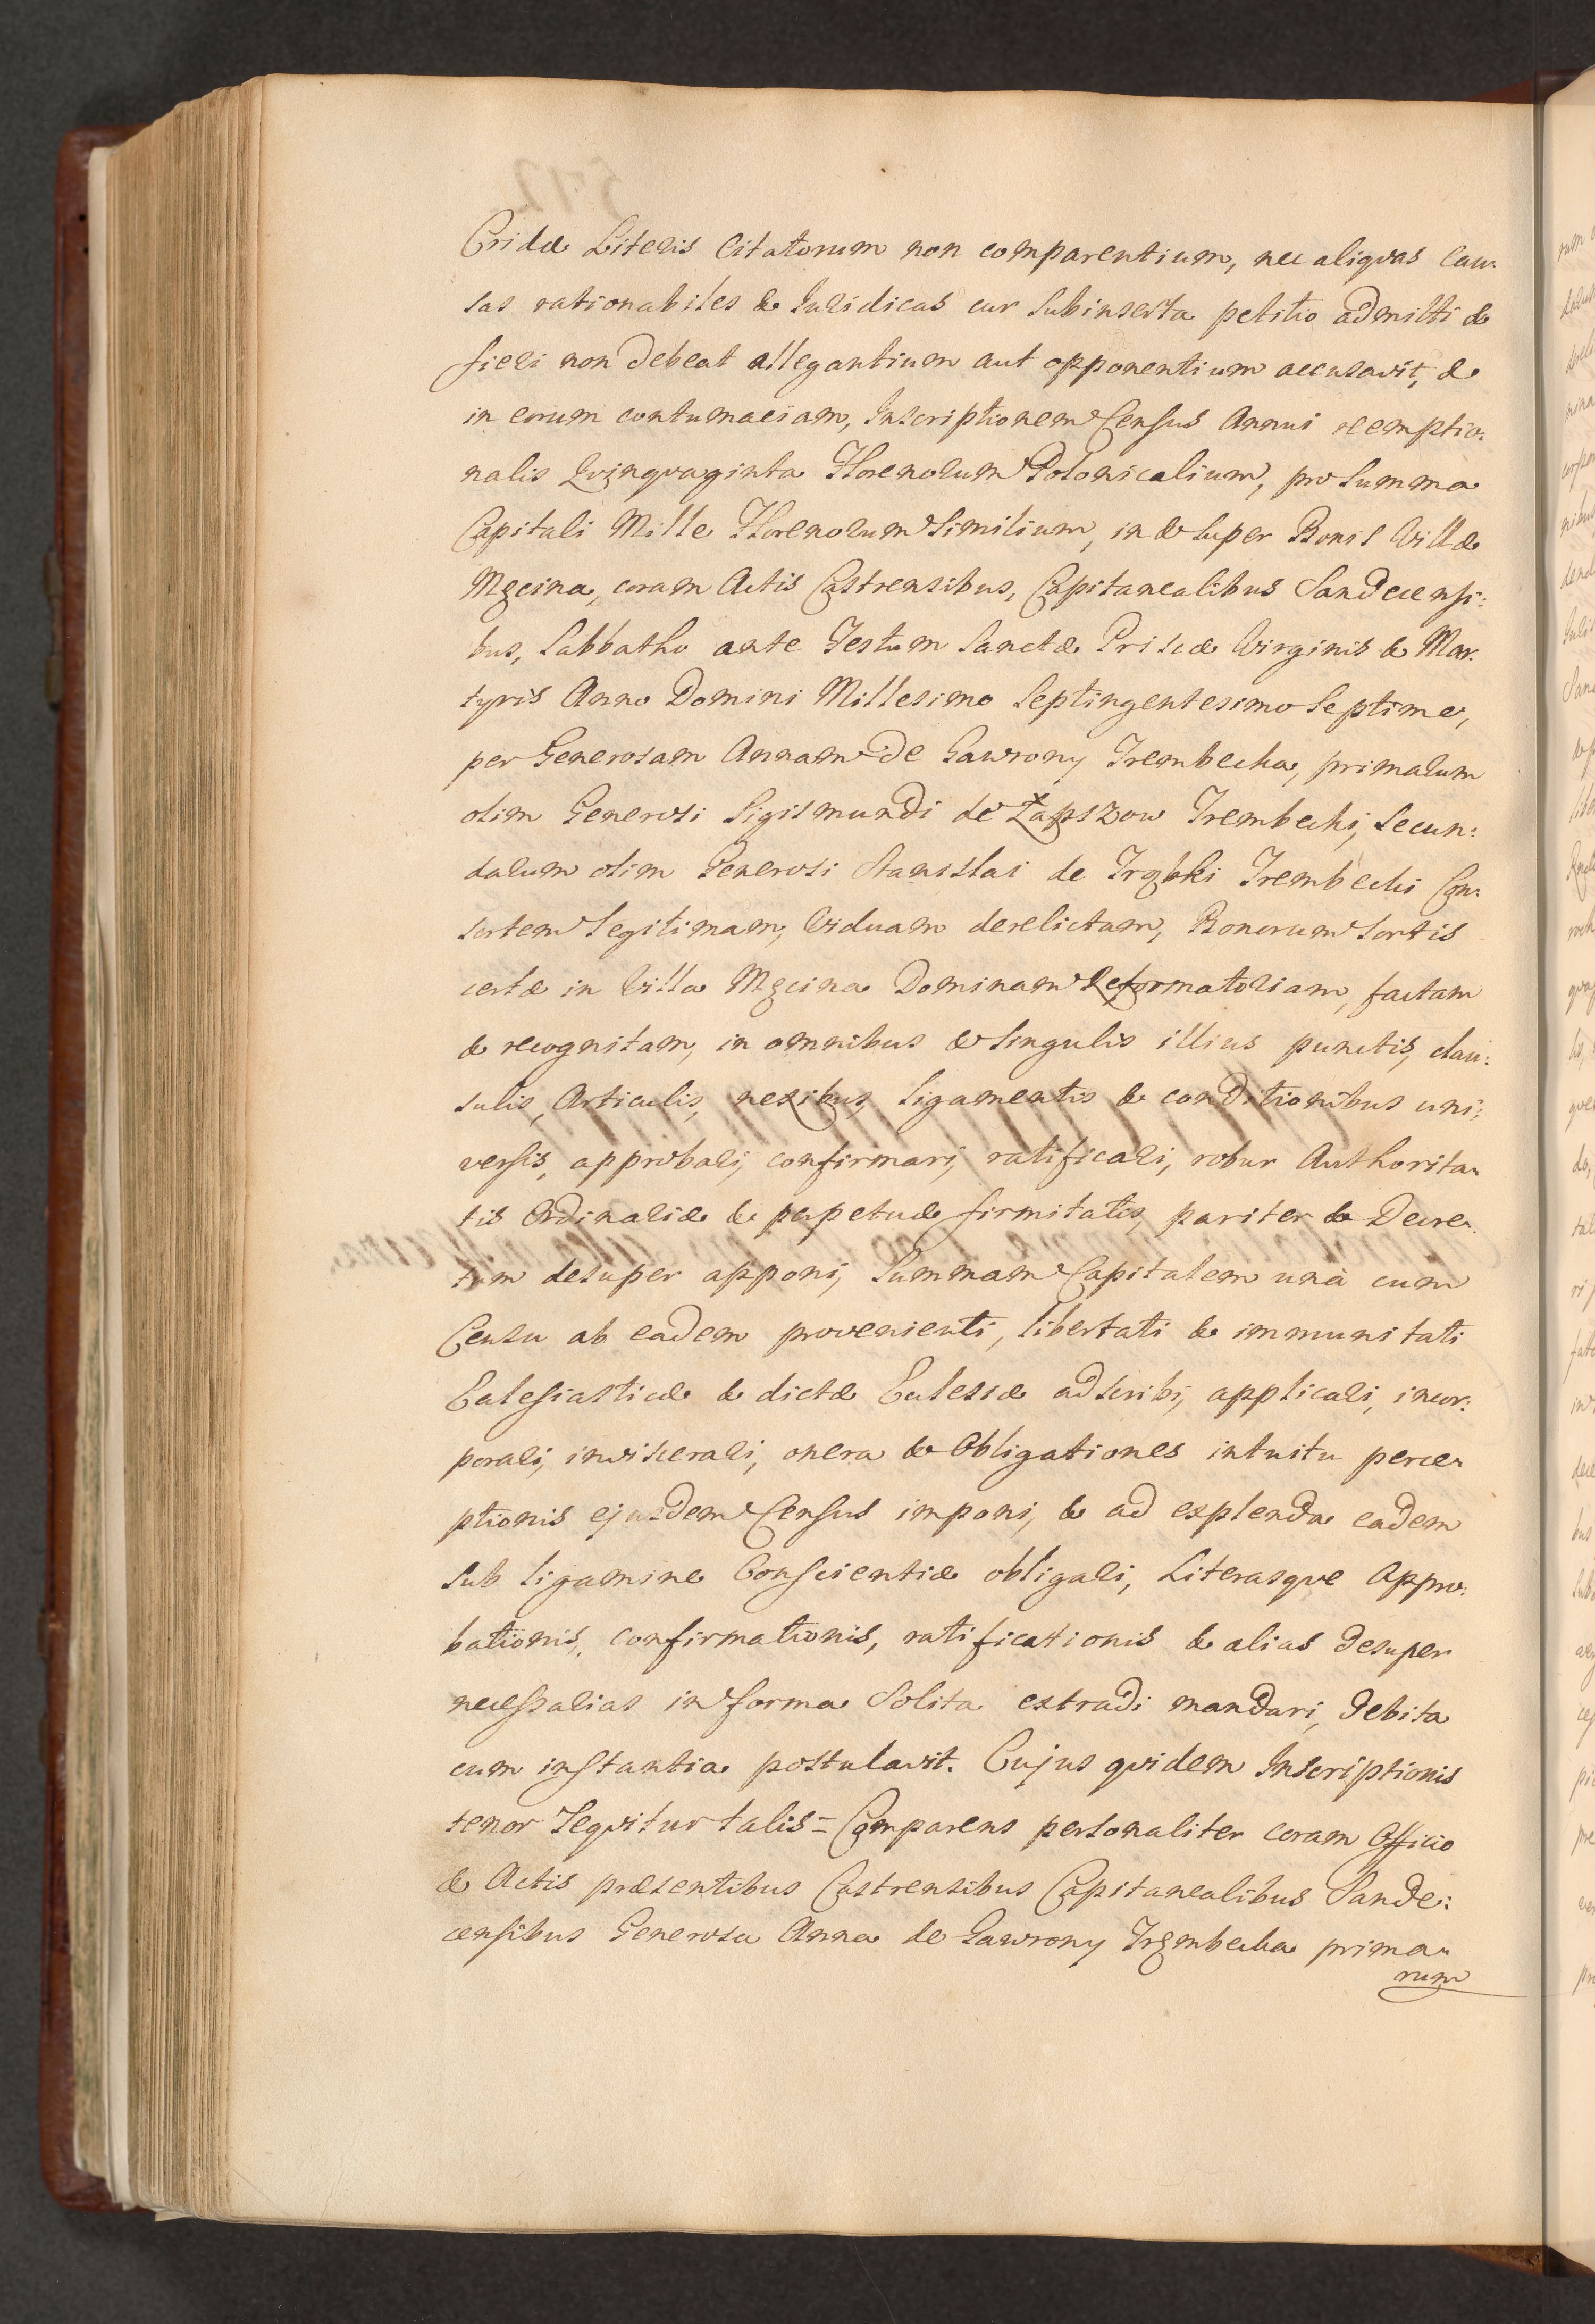 Cridæ Literis Citatorum non comparentium, nec aliqvas Cau:
sas rationabiles & Iuridicas cur subinserta petitio admitti &
fieri non debeat allegantium aut opponentium accusavit, &
in eorum contumaciam, Inscriptionem Census Annui reemptio:
nalis Qvinqvaginta Florenorum Polonicalium, pro summa
Capitali Mille Florenorum Similium, in & super Bonis Villæ
Męcina, coram Actis Castrensibus, Capitanealibus Sandecensi:
bus, Sabbatho ante Festum Sanctæ Priscæ Virginis & Mar:
tyris Anno Domini Millesimo Septingentesimo Septimo,
per Generosam Annam de Gawrony Trembecka, primarum
olim Generosi Sigismundi de Łapszow Trembecki, Secun:
darum olim Generosi Stanislai de Trąbki Trembecki Con:
sortem legitimam, Viduam derelictam, Bonorum Sortis
certæ in Villa Męcina Dominam Reformatoriam, factam
& recognitam, in omnibus & singulis illius punctis, clau:
sulis, Articulis, nexibus, ligamentis & conditionibus uni:
versis, approbari, confirmari, ratificari, robur Authorita:
tis Ordinariæ & perpetuæ firmitatis, pariter & Decre:
tum desuper apponi, Summam Capitalem unà cum
Censu ab eadem provenienti, libertati & immunitati
Eclesiasticæ & dictæ Eclesiæ adscribi, applicari, incor:
porari, inviscerari, onera & Obligationes intuitu perce:
ptionis ejusdem Census imponi, & ad explenda eadem
sub ligamine Conscientiæ obligari, Literasqve Appro:
bationis, confirmationis, ratificationis & alias desuper
necessarias in forma Solita extradi mandari, debita
cum instantia postulavit. Cujus qvidem Inscriptionis
tenor Seqvitur talis = Comparens personaliter coram Officio
& Actis præsentibus Castrensibus Capitanealibus Sande:
censibus Generosa Anna de Gawrony Trembecka prima:
rum